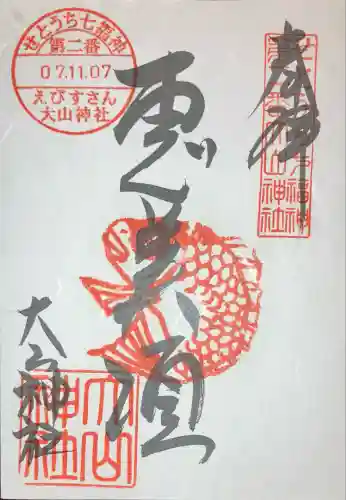 せとうち七福神
第二番
07.11.07
えびすさん
大山神社
奉拝
恵比須
大山神社
大山神社